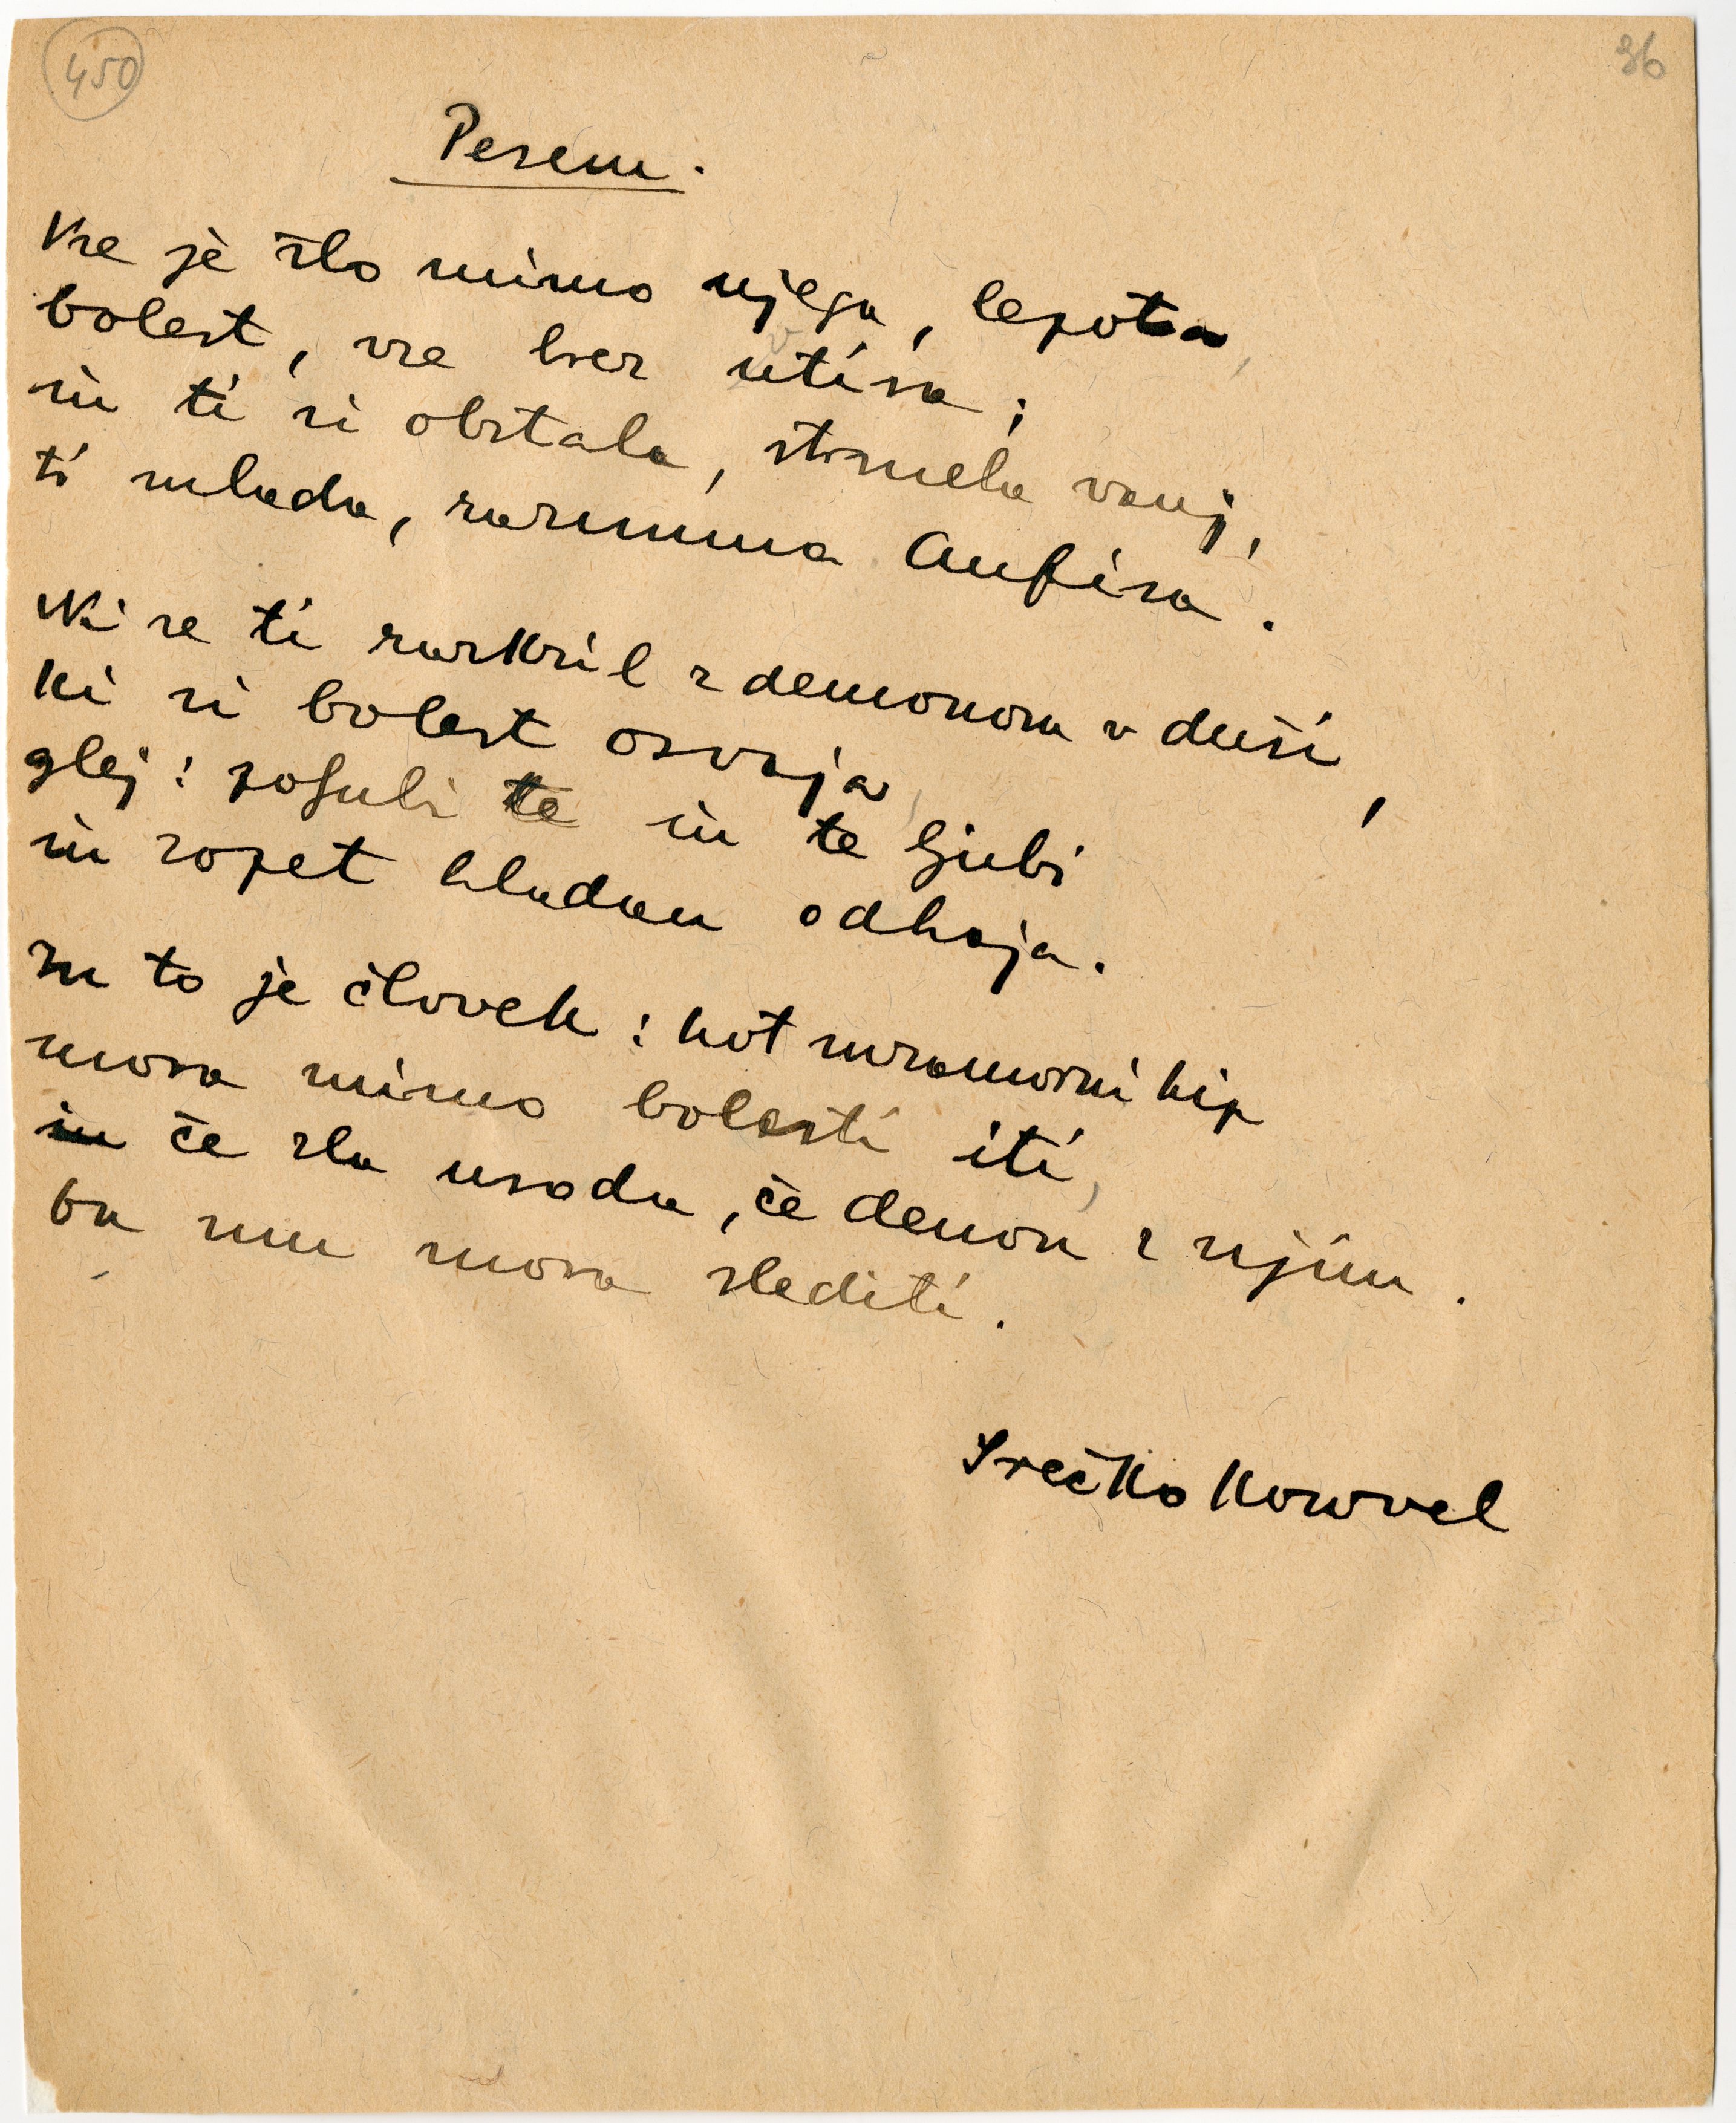 450
36
Pesem.
Vse je šlo mimo njega, lepota,
bolest, vse brez utisa;
in ti si obstala, strmela vanj,
ti mlada, razumna Anfisa.
Ki se ti razkril z demonom v duši,
ki si bolest osvaja,
glej: pogubi te in te ljubi
in zopet hladan odhaja.
In to je človek: kot mramorni kip
mora mimo bolesti iti,
in če zla usoda, če demon z njim.
ba mu mora slediti.
Srečko Kosovel